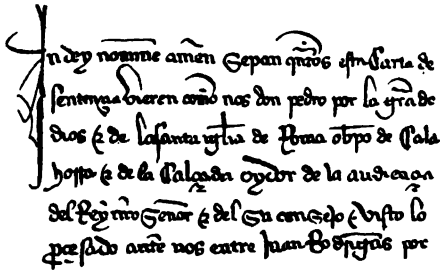 In dey nomine amen Sepan quantos esta Carta de
sentençia vieren como nos don pedro por la graçia de
dios & de la santa iglia de Roma obpo de Cala
horra & de la Calçada oydor de la audiençia
del Rey nro Señor & del Su consejo & visto lo
proçesado ante nos entre Juan Rodrigues por